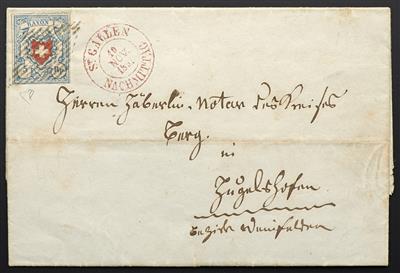 RAYON
ST GALLEN
19
NOV.
NACHMITTAG
Herren Häberlin, Notar des Kreises
Berg.
in
Hugelshofen
Bezirk Weinfelden